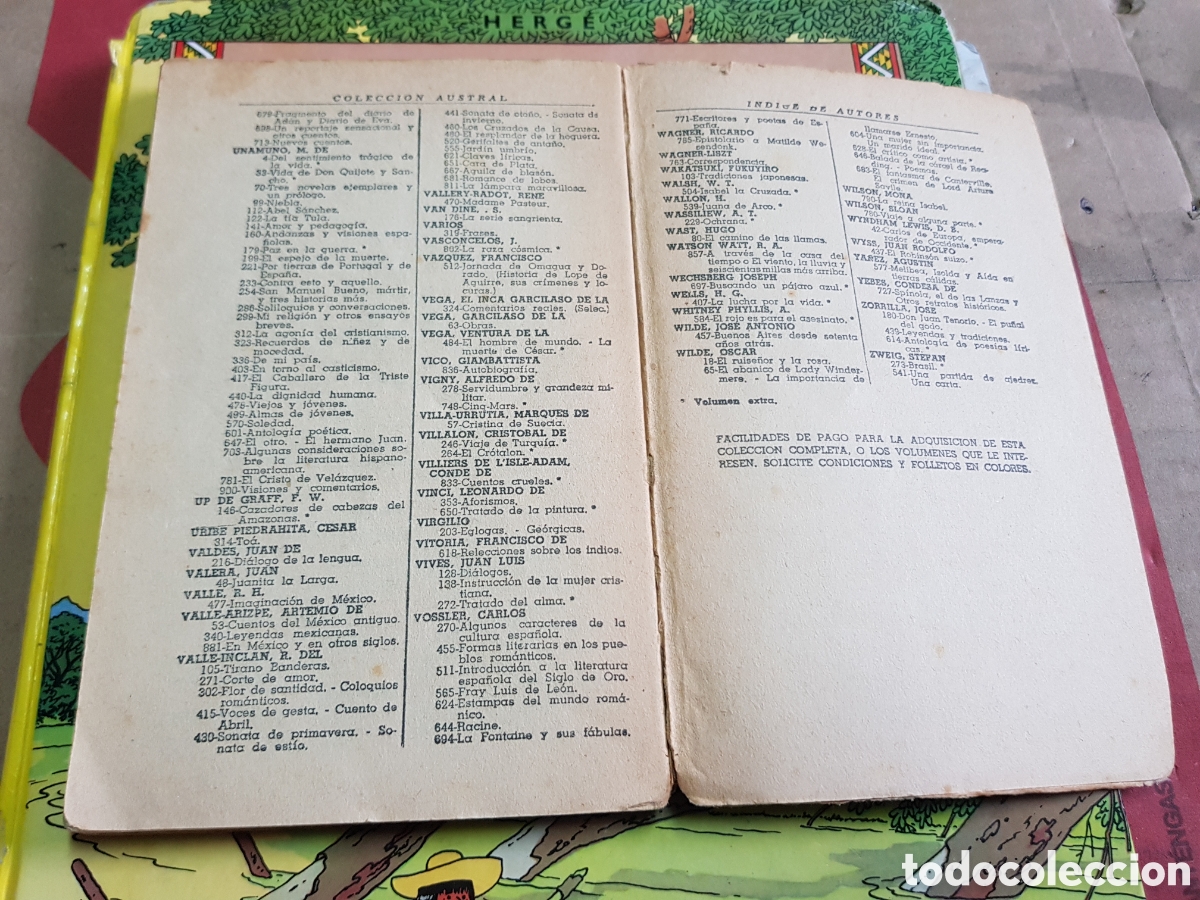 HERGÉ
COLECCION AUSTRAL
679-Fragmento del diario de
Adán y Diario de Eva.
698-Un reportaje sensacional y
otros cuentos.
713-Nuevos cuentos.
UNAMUNO, M. DE
4-Del sentimiento trágico de
la vida. *
33-Vida de Don Quijote y San-
cho. *
70-Tres novelas ejemplares y
un prólogo.
99-Niebla.
112-Abel Sánchez.
122-La tía Tula.
141-Amor y pedagogía.
160-Andanzas y visiones espa-
ñolas.
179-Paz en la guerra. *
199-El espejo de la muerte.
221-Por tierras de Portugal y de
España.
233-Contra esto y aquello.
254-San Manuel Bueno, mártir,
y tres historias más.
286-Soliloquios y conversaciones.
299-Mi religión y otros ensayos
breves.
312-La agonía del cristianismo.
323-Recuerdos de niñez y de
mocedad.
336-De mi país.
403-En torno al casticismo.
417-El Caballero de la Triste
Figura.
440-La dignidad humana.
478-Viejos y jóvenes.
499-Almas de jóvenes.
570-Soledad.
601-Antología poética.
647-El otro. - El hermano Juan.
703-Algunas consideraciones so-
bre la literatura hispano-
americana.
781-El Cristo de Velázquez.
900-Visiones y comentarios.
UP DE GRAFF, F. W.
146-Cazadores de cabezas del
Amazonas. *
URIBE PIEDRAHITA, CESAR
314-Toá.
VALDES, JUAN DE
216-Diálogo de la lengua.
VALERA, JUAN
48-Juanita la Larga.
VALLE, R. H.
477-Imaginación de México.
VALLE-ARIZPE, ARTEMIO DE
53-Cuentos del México antiguo.
340-Leyendas mexicanas.
881-En México y en otros siglos.
VALLE-INCLAN, R. DEL
105-Tirano Banderas.
271-Corte de amor.
302-Flor de santidad. - Coloquios
románticos.
415-Voces de gesta. - Cuento de
Abril.
430-Sonata de primavera. - So-
nata de estío.
441-Sonata de otoño. - Sonata de
invierno.
460-Los Cruzados de la Causa.
480-El resplandor de la hoguera.
520-Gerifaltes de antaño.
555-Jardín umbrío.
621-Claves líricas.
651-Cara de Plata.
667-Aguila de blasón.
681-Romance de lobos.
811-La lámpara maravillosa.
VALLERY-RADOT, RENE
470-Madame Pasteur.
VAN DINE, . S.
176-La serie sangrienta.
VARIOS
319-Frases.
VASCONCELOS, J.
802-La raza cósmica. *
VAZQUEZ, FRANCISCO
512-Jornada de Omagua y Do-
rado. (Historia de Lope de
Aguirre, sus crímenes y lo-
curas.)
VEGA, EL INCA GARCILASO DE LA
324-Comentarios reales. (Selec.)
VEGA, GARCILASO DE LA
63-Obras.
VEGA, VENTURA DE LA
484-El hombre de mundo. - La
muerte de César. *
VICO, GIAMBATTISTA
836-Autobiografía.
VIGNY, ALFREDO DE
278-Servidumbre y grandeza mi-
litar.
748-Cinq-Mars. *
VILLA-URRUTIA, MARQUES DE
57-Cristina de Suecia.
VILLALON, CRISTOBAL DE
246-Viaje de Turquía. *
264-El Crótalon. *
VILLIERS DE L'ISLE-ADAM,
CONDE DE
833-Cuentos crueles. *
VINCI, LEONARDO DE
353-Aforismos.
650-Tratado de la pintura. *
VIRGILIO
203-Eglogas. - Geórgicas.
VITORIA, FRANCISCO DE
618-Relecciones sobre los indios.
VIVES, JUAN LUIS
128-Diálogos.
138-Instrucción de la mujer cris-
tiana.
272-Tratado del alma. *
VOSSLER, CARLOS
270-Algunos caracteres de la
cultura española.
455-Formas literarias en los pue-
blos románticos.
511-Introducción a la literatura
española del Siglo de Oro.
565-Fray Luis de León.
624-Estampas del mundo romá-
nico.
644-Racine.
694-La Fontaine y sus fábulas.
INDICE DE AUTORES
771-Escritores y poetas de Es-
paña.
WAGNER, RICARDO
785-Epistolario a Matilde We-
sendonk.
WAGNER-LISZT
763-Correspondencia.
WAKATSUKI, FUKUYIRO
103-Tradiciones japonesas.
WALSH, W. T.
504-Isabel la Cruzada. *
WALLON, H.
539-Juana de Arco. *
WASSILIEW, A. T.
229-Ochrana. *
WAST, HUGO
80-El camino de las llamas.
WATSON WATT, R. A.
857-A través de la casa del
tiempo o El viento, la lluvia y
seiscientas millas más arriba.
WECHSBERG JOSEPH
697-Buscando un pájaro azul. *
WELLS, H. G.
407-La lucha por la vida. *
WHITNEY PHYLLIS, A.
584-El rojo es para el asesinato. *
WILDE, JOSÉ ANTONIO
457-Buenos Aires desde setenta
años atrás.
WILDE, OSCAR
18-El ruiseñor y la rosa.
65-El abanico de Lady Winder-
mere. - La importancia de
llamarse Ernesto.
604-Una mujer sin importancia.
Un marido ideal. *
629-El crítico como artista. *
646-Balada de la cárcel de Rea-
ding. - Poemas.
683-El fantasma de Canterville.
El crimen de Lord Arturo
Savile.
WILSON, MONA
790-La reina Isabel.
WILSON, SLOAN
780-Viaje a alguna parte. *
WYNDHAM LEWIS, D. B.
42-Carlos de Europa, empera-
dor de Occidente. *
WYSS, JUAN RODOLFO
437-El Robinsón suizo. *
YAÑEZ, AGUSTIN
577-Melibea, Isolda y Alda en
tierras cálidas.
YEBES, CONDESA DE
727-Spínola, el de las Lanzas y
Otros retratos históricos.
ZORRILLA, JOSE
180-Don Juan Tenorio. - El puñal
del godo.
439-Leyendas y tradiciones.
614-Antología de poesías líri-
cas. *
ZWEIG, STEFAN
273-Brasil. *
541-Una partida de ajedrez.
Una carta.
* Volumen extra.
FACILIDADES DE PAGO PARA LA ADQUISICION DE ESTA
COLECCION COMPLETA, O LOS VOLUMENES QUE LE INTE-
RESEN. SOLICITE CONDICIONES Y FOLLETOS EN COLORES.
todocoleccion